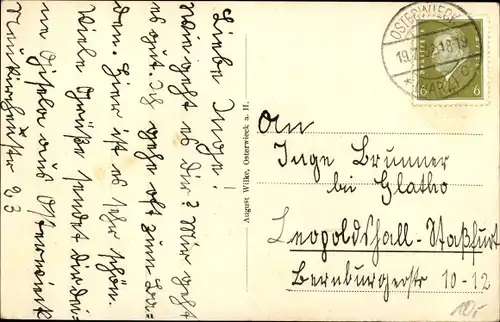 Liebe Inge!
wie geht es dir? Mir geht
es gut. Ich gehe oft zum Ba-
den. Hier ist es sehr schön.
Viele Grüße sendet dir dei-
ne Gisela aus Osterwieck
Neukirchenstr 23
August Wilke, Osterwieck a. H.
OSTERWIECK
(HARZ)
6 6
An
Inge Brunner
bei Glatho
Leopoldshall-Staßfurt
Bernburgerstr 10-12
10,-